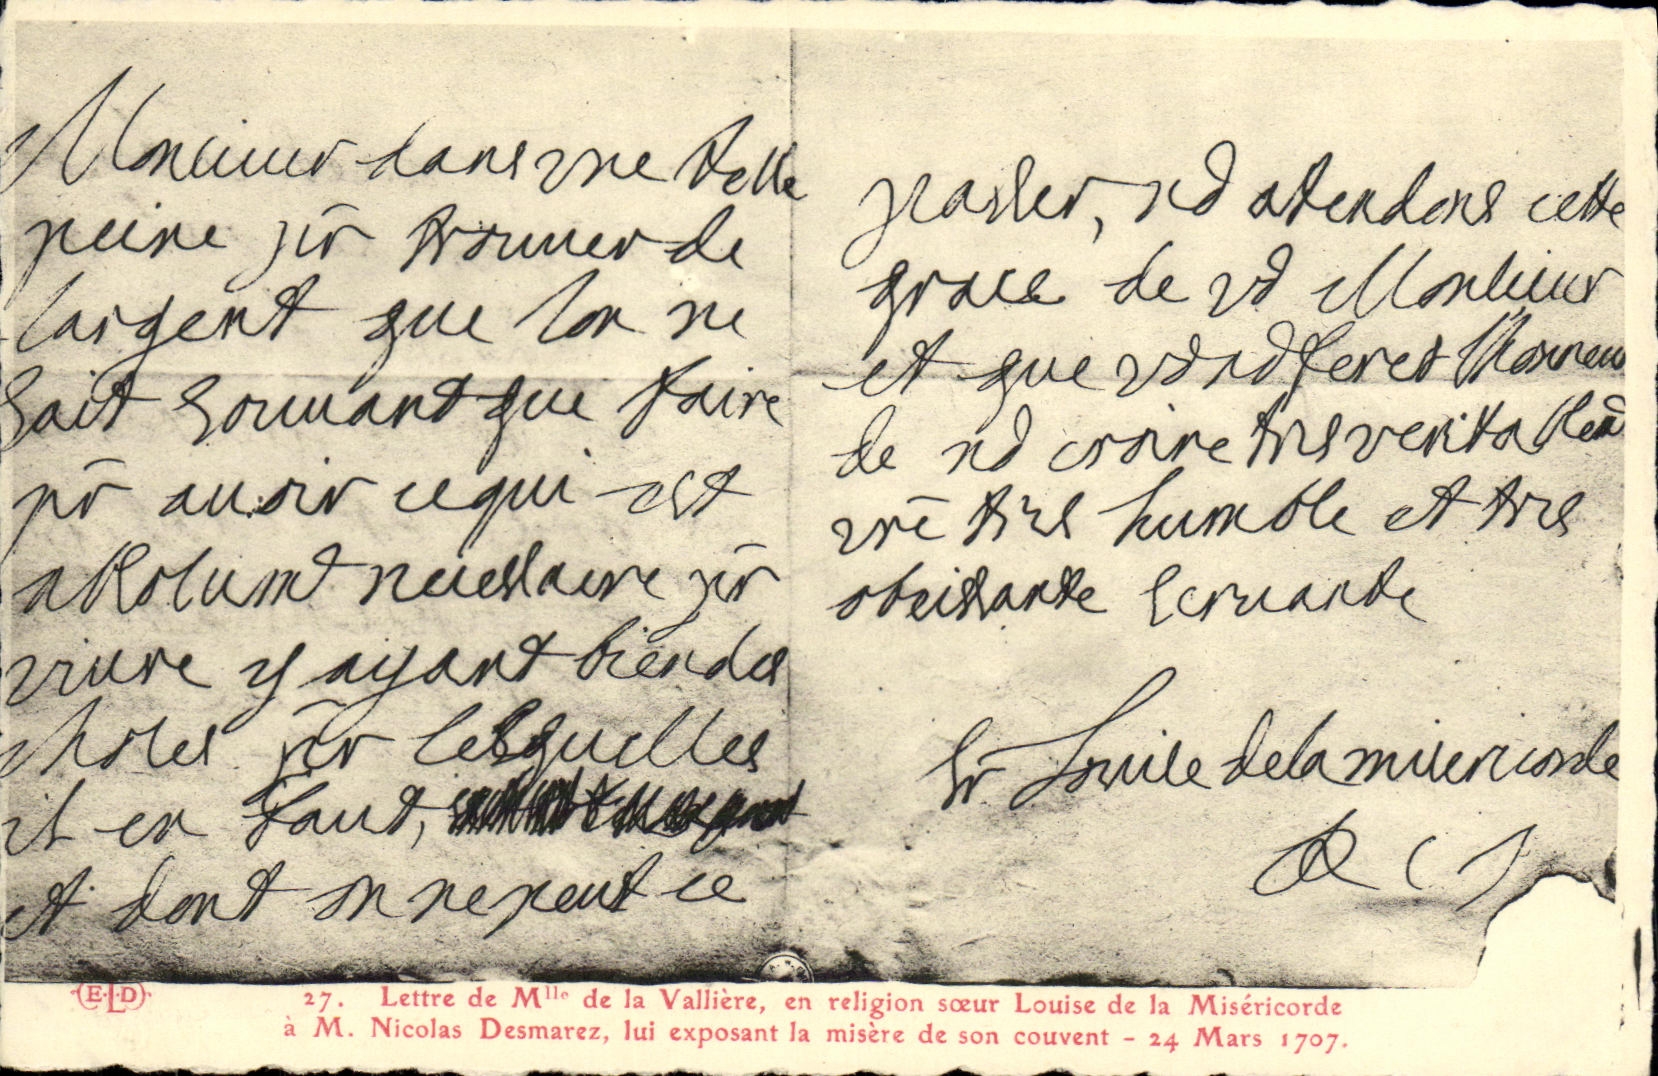 Monsieur dans vne telle
peine pr trouuer de
largent que lon ne
sait souuant que faire
pr auoir ce qui est
absolumt necessaire pr
viure y ayant bien des
choses pr lesquelles
il en faut,
et dont on ne peut ce
passer, ns atendons cette
grace de vs Monsieur
et que vs ns feres lhonneur
de ns croire tres veritablemt
vre tres humble et tres
obeissante seruante
Sr Louise de la misericorde
R C J
E.L.D
27. Lettre de Mlle de la Vallière, en religion sœur Louise de la Miséricorde
à M. Nicolas Desmarez, lui exposant la misère de son couvent - 24 Mars 1707.